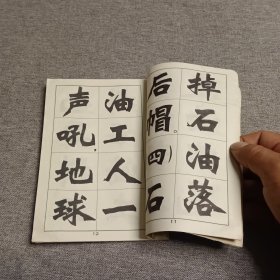 掉石油落
后帽。(四)石
11
油工人一
声吼,地球
12